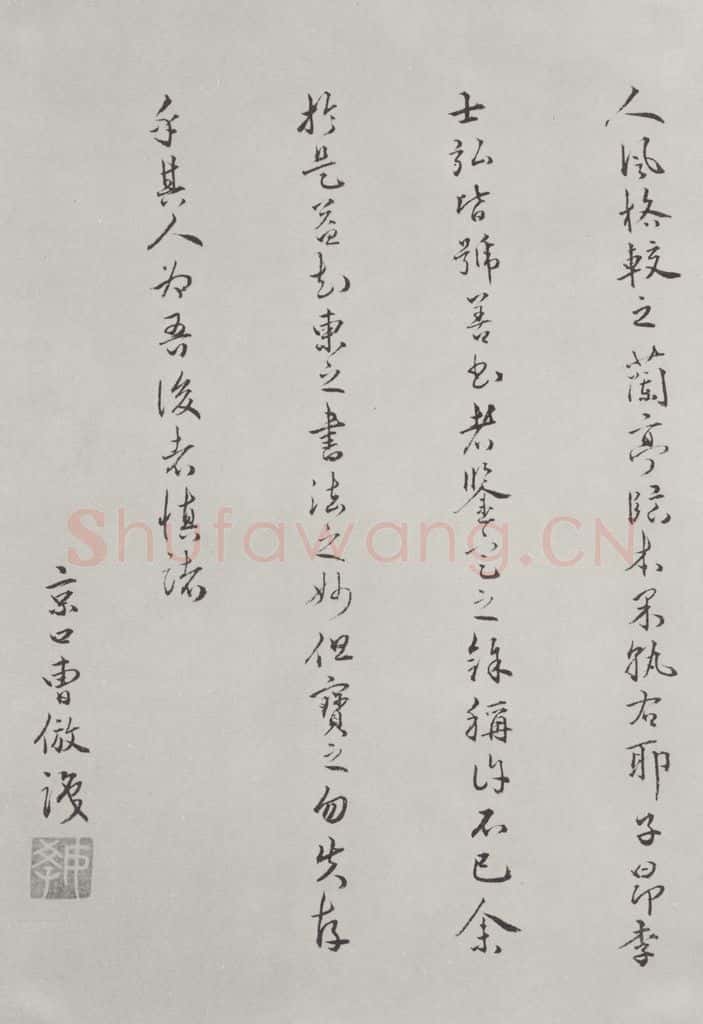 人風格較之蘭亭臨本果孰右耶子昂李
士弘皆號善書者鑒定之餘稱許不已余
於是益知柬之書法之妙但寶之勿失存
乎其人為吾後者慎諸
京口曹倣識
Shufawang.CN